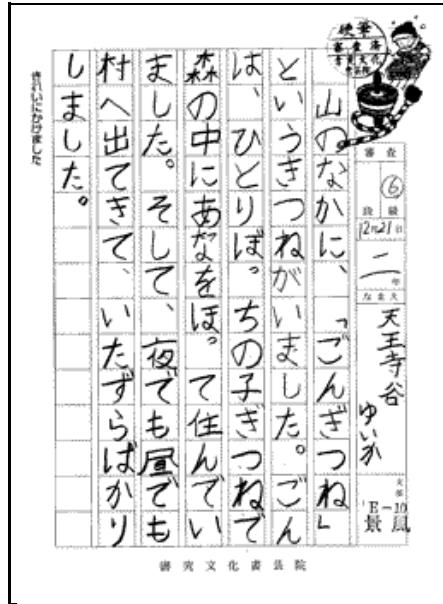 硬筆
審査
⑥
段 級
12月21日
二年
なまえ
天王寺谷
ゆいか
支部
E-10
景風
山のなかに、「ごんぎつね」
というきつねがいました。ごん
は、ひとりぼっちの子ぎつねで
森の中にあなをほって住んでい
ました。そして、夜でも昼でも
村へ出てきて、いたずらばかり
しました。
きれいにかけました
書究文化書芸院